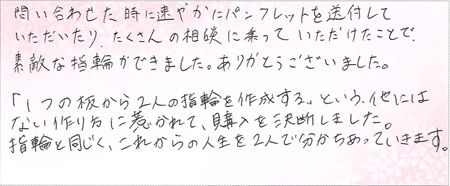 問い合わせた時に速やかにパンフレットを送付して
いただいたり、たくさんの相談に乗っていただけたことで、
素敵な指輪ができました。ありがとうございました。
「1つの板から2人の指輪を作成する」という、他には
ない作り方に惹かれて、購入を決断しました。
指輪と同じく、これからの人生を2人で分かちあっていきます。